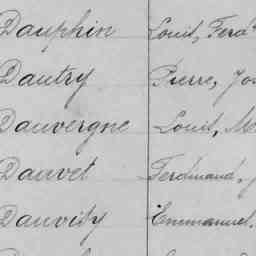 Dauphin Louis, Ferd
Dautry Pierre, Jos
Dauvergne Louis, M
Dauvet Ferdinand, J
Dauvidy Emmanuel,